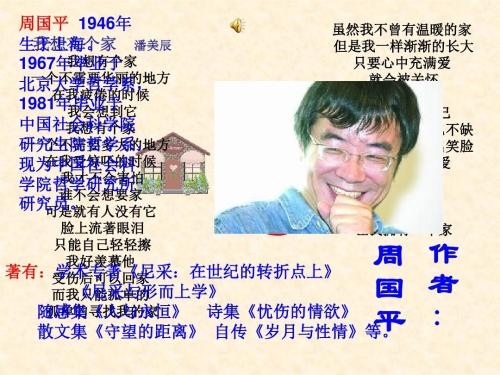 周国平 1946年
生于上海。
1967年毕业于
北京大学哲学系，
1981年毕业于
中国社会科学院
研究生院哲学系。
现为中国社会科
学院哲学研究所
研究员。
我想有个家 潘美辰
我想有个家
一个不需要华丽的地方
在我疲倦的时候
我会想到它
我想有个家
一个不需要多大的地方
在我受惊吓的时候
我才不会害怕
谁不会想要家
可是就有人没有它
脸上流著眼泪
只能自己轻轻擦
我好羡慕他
受伤后可以回家
而我只能孤单的
孤单的寻找我的家
虽然我不曾有温暖的家
但是我一样渐渐的长大
只要心中充满爱
就会被关怀
不缺
出笑脸
爱
个家
著有：学术专著《尼采：在世纪的转折点上》
《尼采与形而上学》
随感集《人与永恒》 诗集《忧伤的情欲》
散文集《守望的距离》 自传《岁月与性情》等。
作者：
周国平